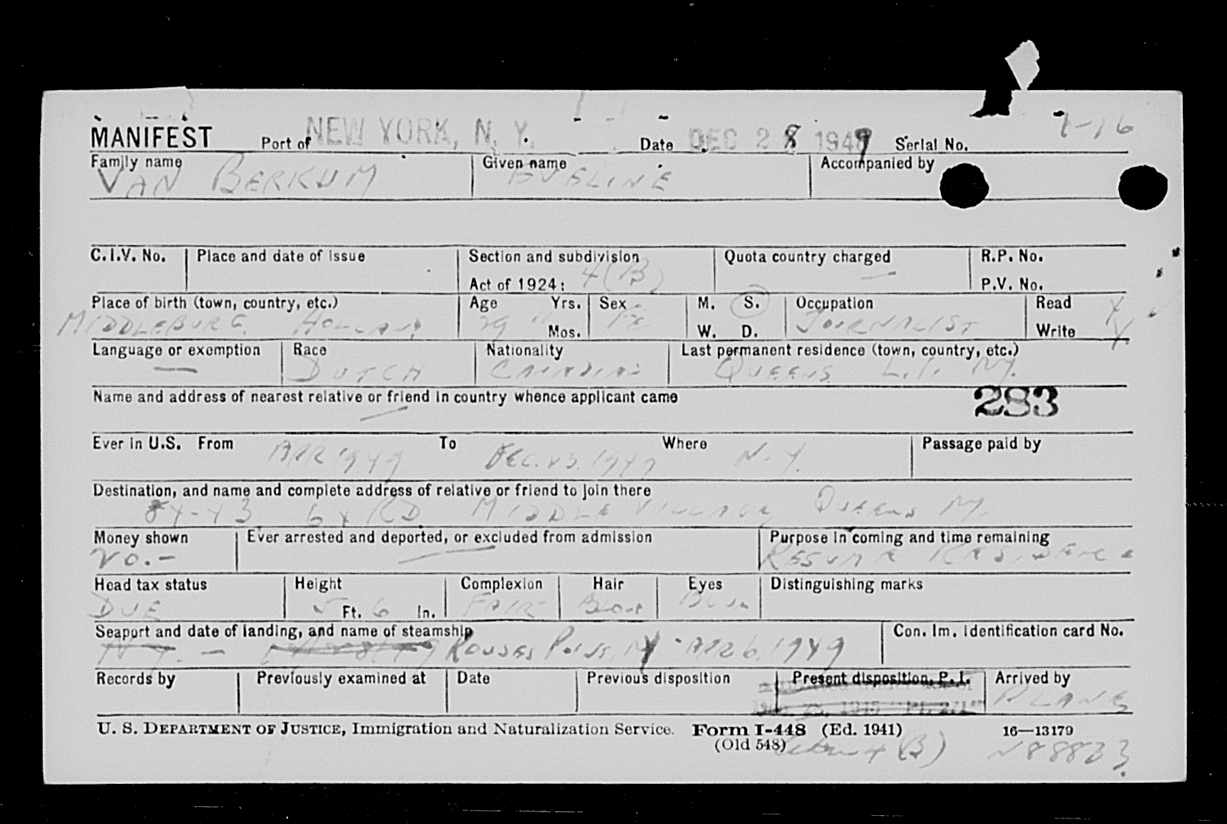 7-16
MANIFEST Port of NEW YORK, N. Y. Date DEC 28 1949 Serial No.
Family name Given name Accompanied by
VAN BERKUM EVELINE
C.I.V. No. Place and date of issue Section and subdivision Quota country charged R.P. No.
Act of 1924: 4(B) — P.V. No.
Place of birth (town, country, etc.) Age Yrs. Sex M. S. Occupation Read X
MIDDLEBURG HOLLAND 29 Mos. W. D. JOURNALIST Write X
Language or exemption Race Nationality Last permanent residence (town, country, etc.)
— DUTCH CANADIAN QUEENS L.I. NY.
Name and address of nearest relative or friend in country whence applicant came
— 283
Ever in U.S. From APR 1949 To DEC. 23. 1949 Where N.Y. Passage paid by
Destination, and name and complete address of relative or friend to join there
RD MIDDLE VILLAGE QUEENS NY.
Money shown Ever arrested and deported, or excluded from admission Purpose in coming and time remaining
— RESUME RESIDENCE
Head tax status Height Complexion Hair Eyes Distinguishing marks
DUE 5 Ft. 6 In. FAIR
Seaport and date of landing, and name of steamship Con. Im. Identification card No.
N.Y. — ROUSES POINT, NY APR 6, 1949
Records by Previously examined at Date Previous disposition Present disposition, P. I. Arrived by
PLANE
U. S. DEPARTMENT OF JUSTICE, Immigration and Naturalization Service. Form I-448 (Ed. 1941) 16—13179
(Old 548) 4(B) N88823